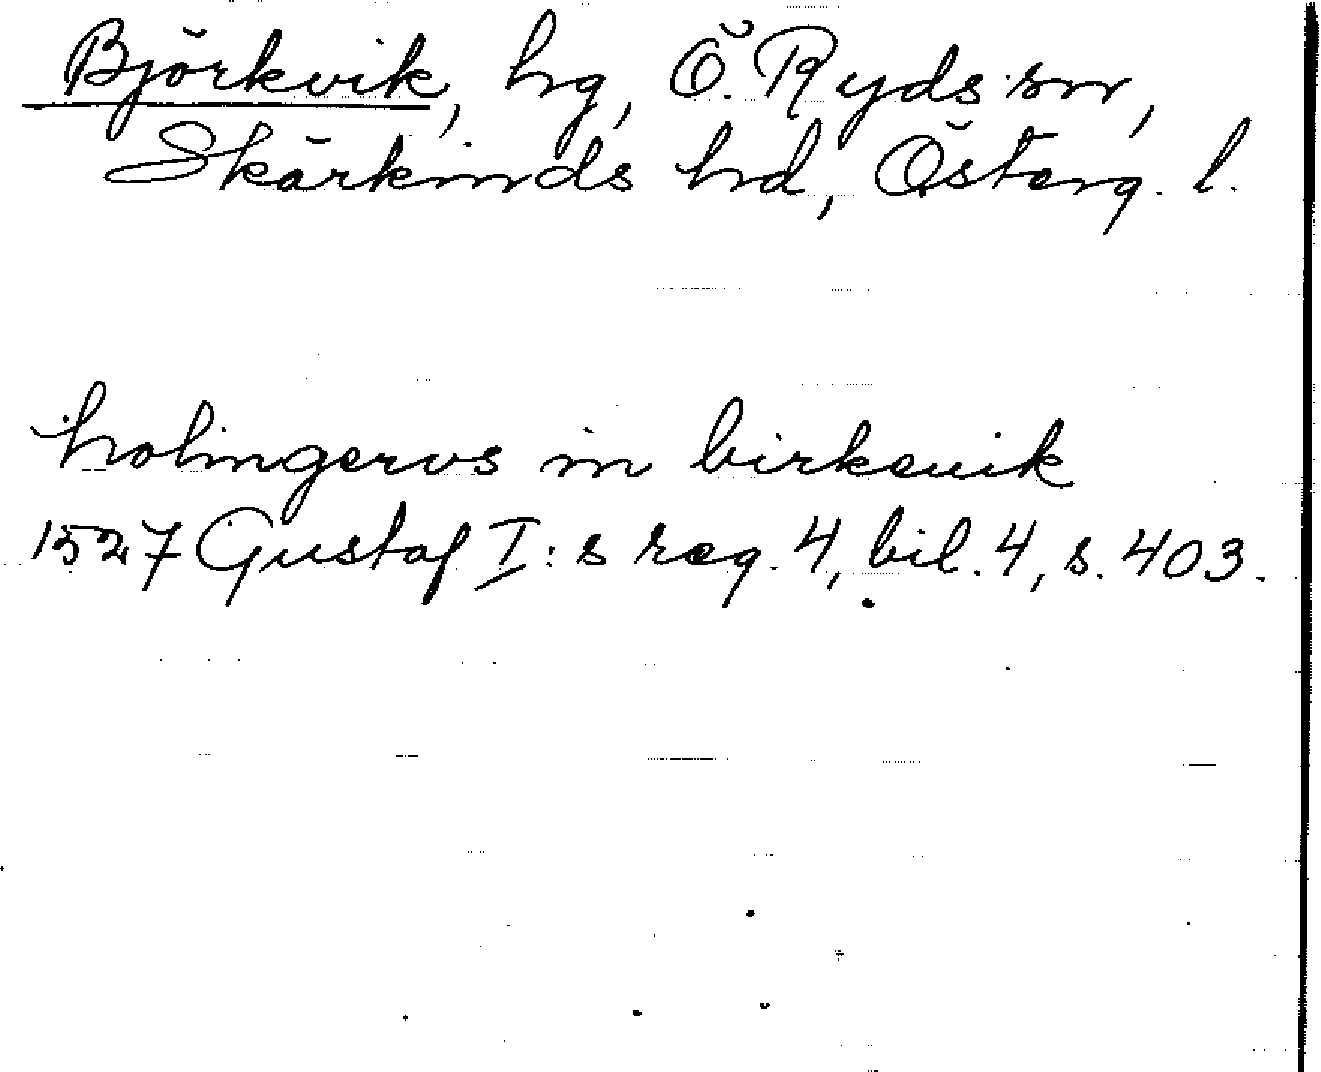 Björkvik, hg, Ö. Ryds sn,
Skärkinds hd, Österg. l.
holingerus in birkeuik
1527 Gustaf I:s reg. 4, bil. 4, s. 403.